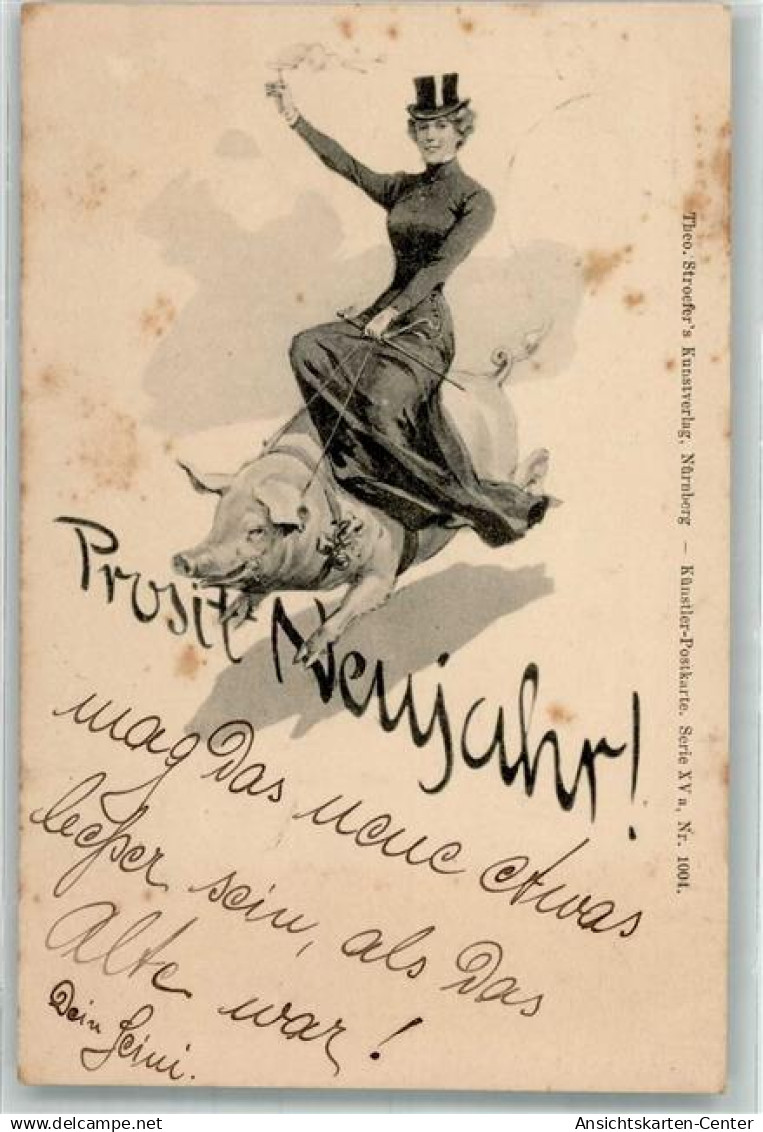 Prosit Neujahr!
mag das neue etwas
besser sein, als das
Alte war!
Dein Heini.
Theo. Stroefer's Kunstverlag, Nürnberg — Künstler-Postkarte. Serie XV a, Nr. 1004.
oldthing
Ansichtskarten-Center